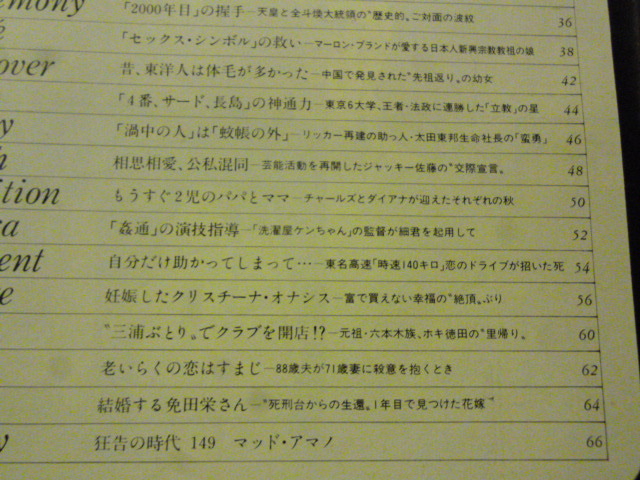 emony 「2000年目」の握手─天皇と全斗煥大統領の〝歴史的〟ご対面の波紋 36
「セックス・シンボル」の救い─マーロン・ブランドが愛する日本人新興宗教教祖の娘 38
over 昔、東洋人は体毛が多かった─中国で発見された〝先祖返り〟の幼女 42
「4番、サード、長島」の神通力─東京6大学、王者・法政に連勝した「立教」の星 44
y 「渦中の人」は「蚊帳の外」─リッカー再建の助っ人・太田東邦生命社長の「蛮勇」 46
相思相愛、公私混同─芸能活動を再開したジャッキー佐藤の〝交際宣言〟 48
ition もうすぐ2児のパパとママ─チャールズとダイアナが迎えたそれぞれの秋 50
a 「姦通」の演技指導─「洗濯屋ケンちゃん」の監督が細君を起用して 52
ent 自分だけ助かってしまって…─東名高速「時速140キロ」恋のドライブが招いた死 54
e 妊娠したクリスチーナ・オナシス─富で買えない幸福の〝絶頂〟ぶり 56
〝三浦ぶとり〟でクラブを開店!?─元祖・六本木族、ホキ徳田の〝里帰り〟 60
老いらくの恋はすまじ─88歳夫が71歳妻に殺意を抱くとき 62
結婚する免田栄さん─〝死刑台からの生還〟1年目で見つけた花嫁〟 64
y 狂告の時代 149 マッド・アマノ 66